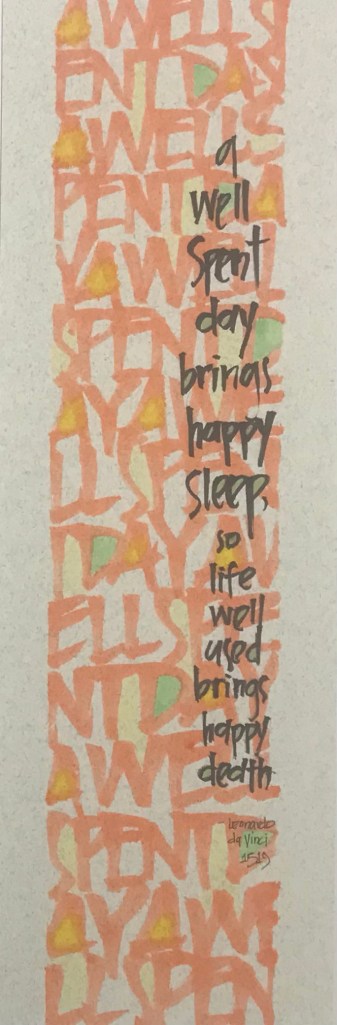 A WELLS
ENT DAY
A WELLS
PENT DA
Y A WELL
SPENT D
AY A WE
LL SPEN
T DAY A W
ELL SPE
NT DAY
A WELL
SPENT D
AY A WE
LL SPEN
a
well
spent
day
brings
happy
sleep,
so
life
well
used
brings
happy
death
- Leonardo
da Vinci
1519